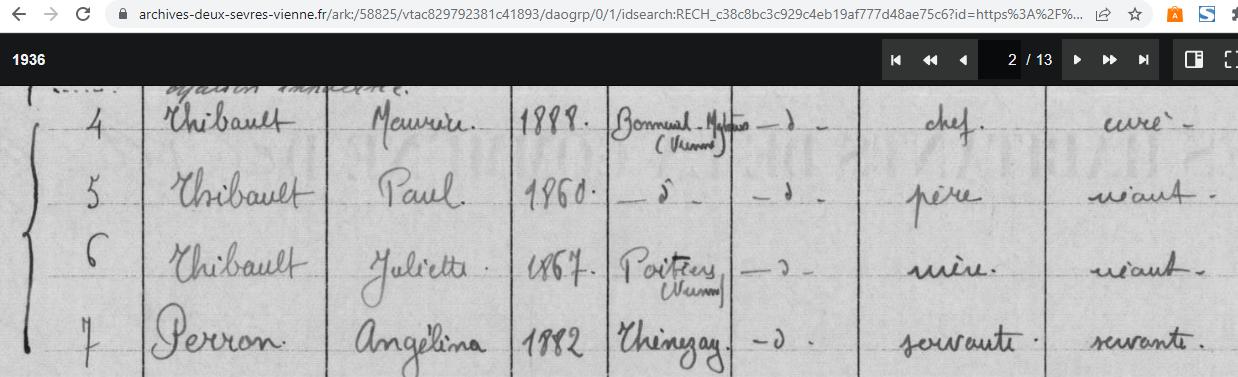 archives-deux-sevres-vienne.fr/ark:/58825/vtac829792381c41893/daogrp/0/1/idsearch:RECH_c38c8bc3c929c4eb19af777d48ae75c6?id=https%3A%2F%...
1936 2 / 13
4 Thibault Maurice. 1888. Bonneuil-Matours (Vienne) — d - chef. curé -
5 Thibault Paul. 1860. — d - — d - père néant -
6 Thibault Juliette. 1867. Poitiers (Vienne) — d - mère. néant -
7 Perron. Angélina 1882 Thénezay. — d . servante. servante.